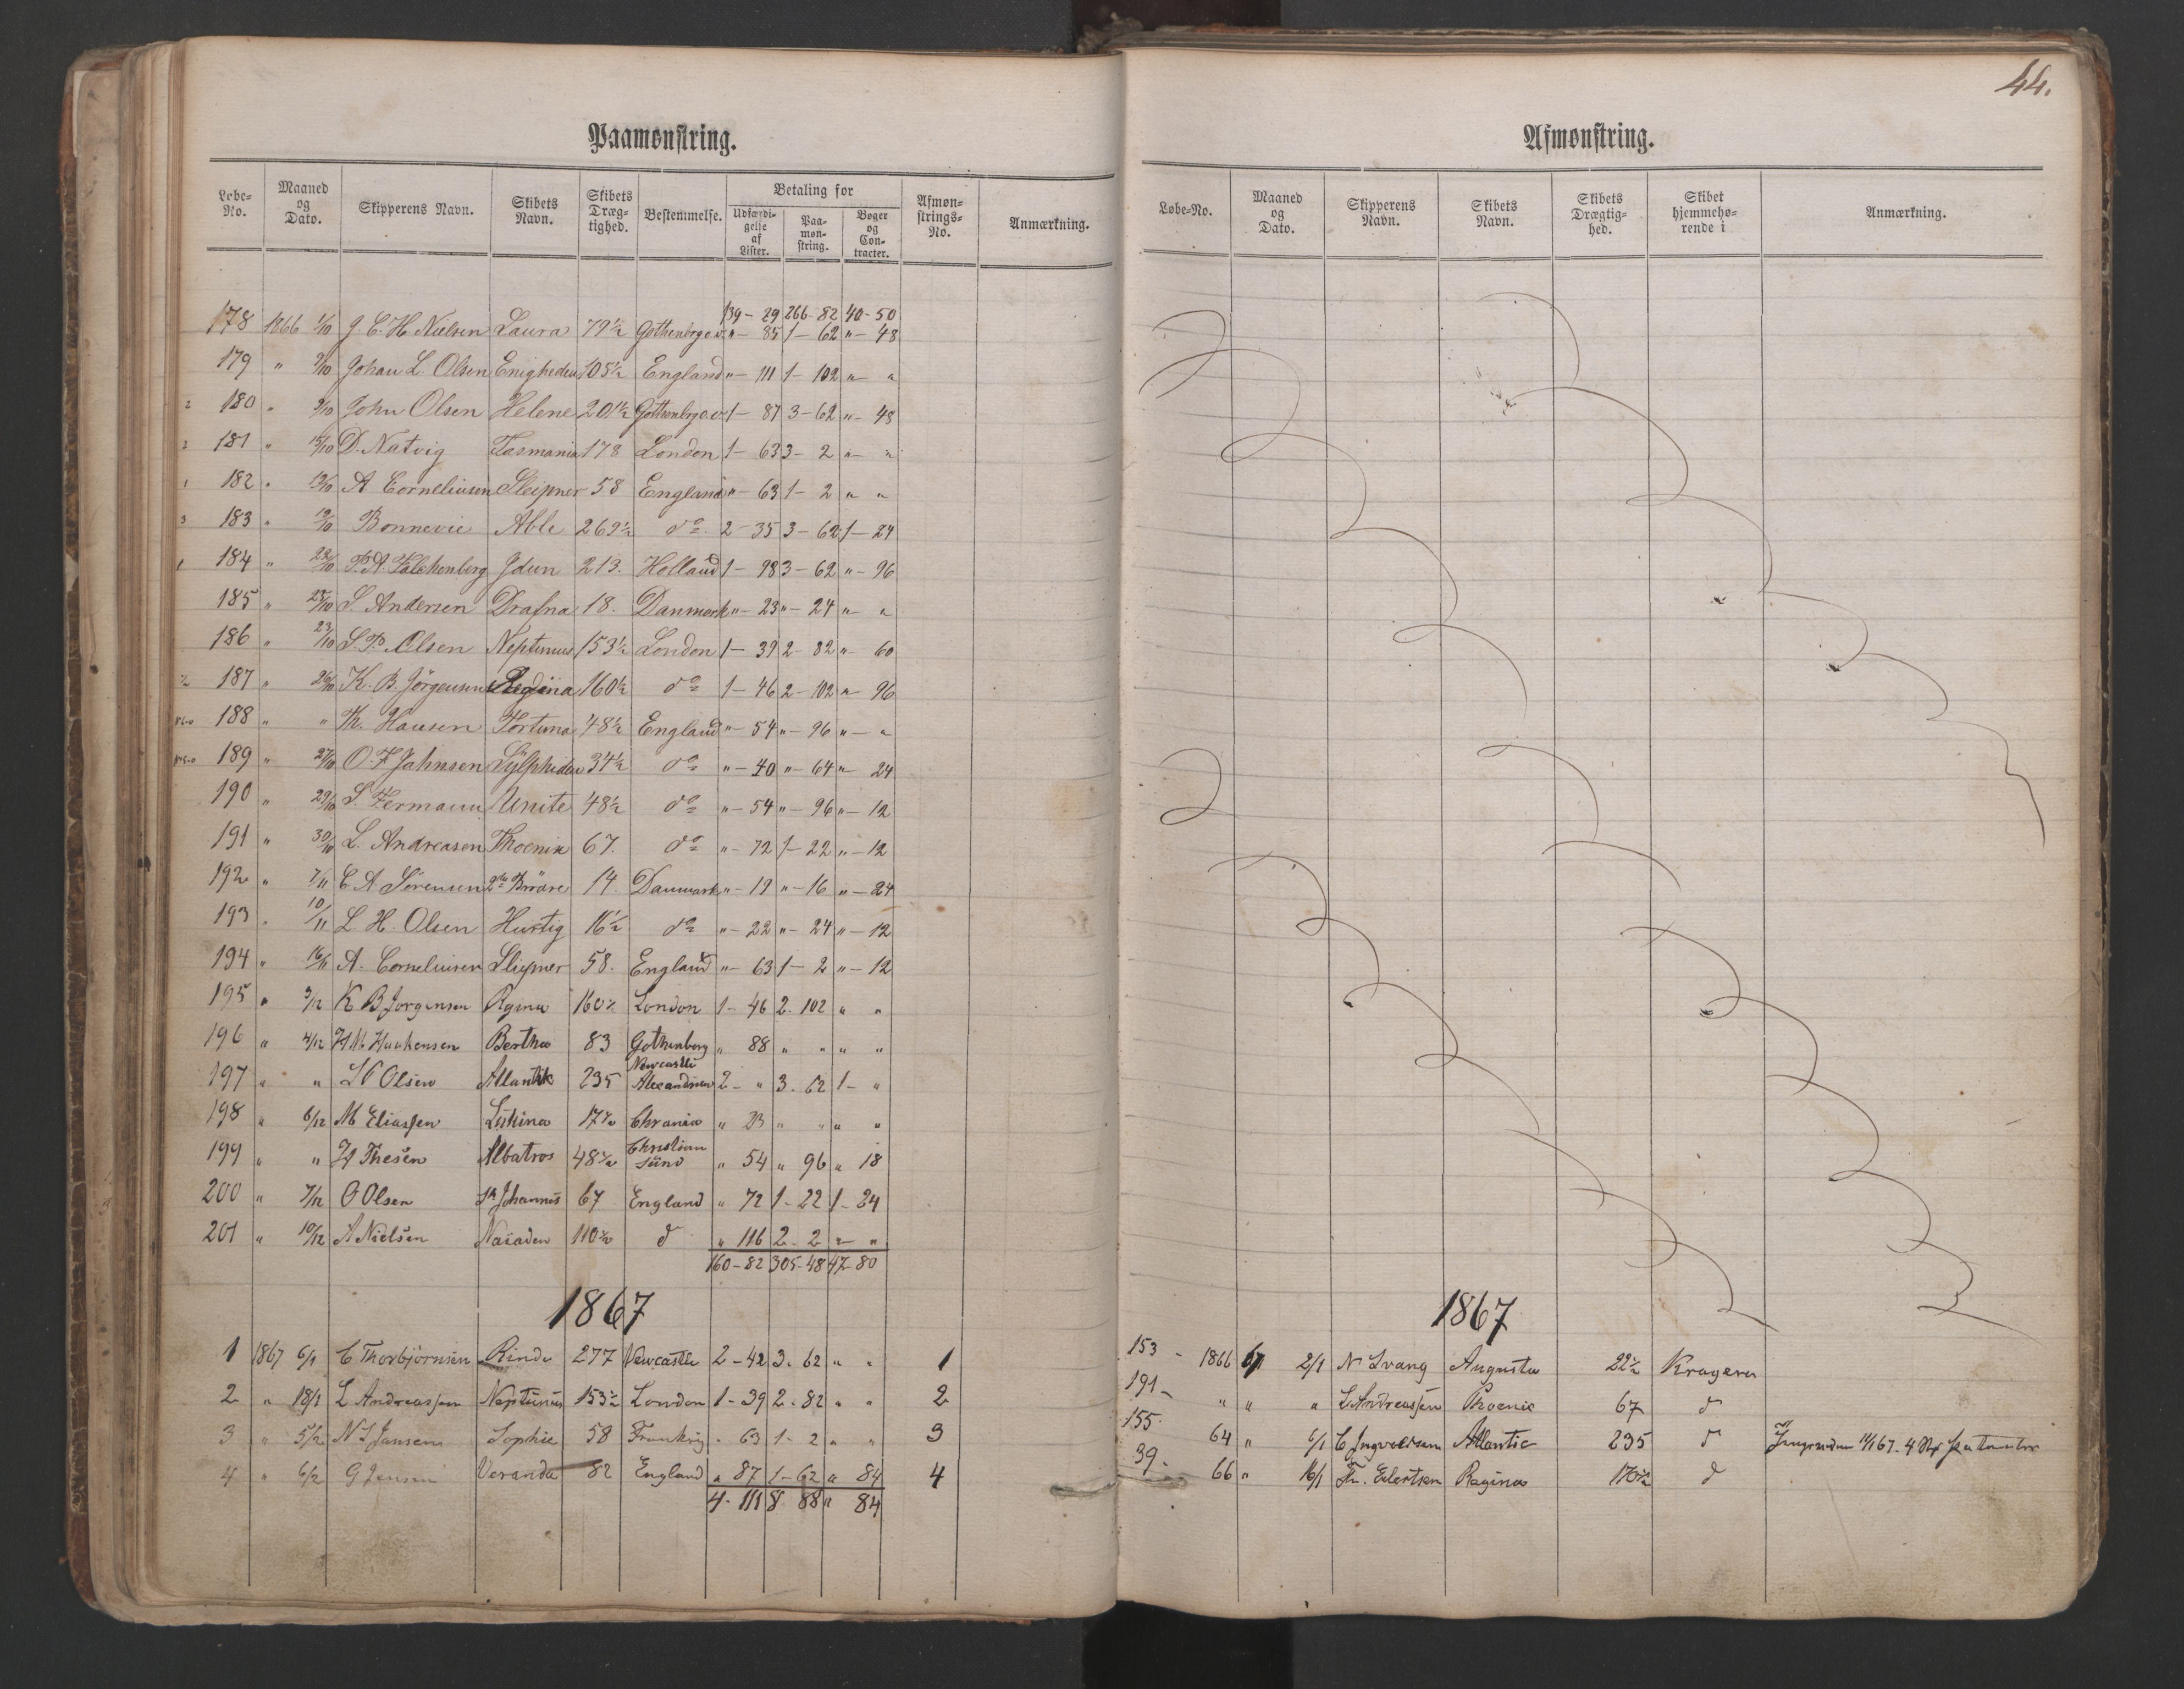 Paamønstring.
Løbe-No. Maaned og Dato. Skipperens Navn. Skibets Navn. Skibets Dræg-tighed. Bestemmelse. Betaling for Udfærdi-gelse af Lister. Paa-møn-string. Bøger og Con-tracter. Afmøn-strings-No. Anmærkning.
139 - 29 266 - 82 40 - 50
178 1866 1/10 J. C. H. Nielsen Laura 79 1/2 Gothenbrg o.v. " - 85 1 - 62 " - 48
179 " 9/10 Johan L. Olsen Enigheden 105 1/2 England " - 111 1 - 102 " "
2 180 " 9/10 John Olsen Helene 201 1/2 Gothenbrg o.v. 1 - 87 3 - 62 " - 48
2 181 " 15/10 D. Natvig Tasmania 178 London 1 - 63 3 - 2 " "
1 182 " A Corneliusen Sleipner 58 England " - 63 1 - 2 " "
3 183 " 19/10 Bonnevie Able 269 1/2 do 2 - 35 3 - 62 1 - 24
1 184 " P. A. Falchenberg Idun 213. Holland 1 - 98 3 - 62 " - 96
185 " S. Andersen Drafna 18. Danmark " - 23 " - 24 " "
186 " 23/10 S. P. Olsen Neptunus 153 1/2 London 1 - 39 2 - 82 " - 60
187 " 26/10 K. B. Jörgensen Regina 160 1/2 do 1 - 46 2 - 102 " - 96
188 " " Th. Hansen Fortuna 48 1/2 England " - 54 " - 96 " - "
189 " 27/10 O. F. Jahnsen Sylpheden 34 1/2 do " - 40 " - 64 " - 24
190 " 29/10 S. Fermann Unite 48 1/2 do " - 54 " - 96 " - 12
191 " 30/10 L. Andreasen Phoenix 67. do " - 72 1 - 22 " - 12
192 " 7/11 C A Sörensen 2de Brödre 14. Danmark " - 19 " - 16 " - 24
193 " 10/11 L. H. Olsen Hurtig 16 1/2 do " - 22 " - 24 " - 12
194 " 16/11 A. Corneliusen Sleipner 58. England " - 63 1 - 2 " - 12
195 " 3/12 K B Jorgensen Regina 160 1/2 London 1 - 46 2 - 102 " "
196 " 4/12 H M Haakensen Bertha 83 Gothenborg " 88 " " " "
197 " " L P Olsen Atlantik 235 Newcastle Alexandrien 2 - " 3 - 62 1 - "
198 " 6/12 M Eliassen Lükina 17 1/2 Chrania " 23 " " " "
199 " " H Thesen Albatros 48 1/2 Christiansund " 54 " 96 " 18
200 " 7/12 O Olsen St Johannes 67 England " 72 1 - 22 1 - 24
201 " 10/12 A Nielsen Naiaden 110 1/2 d " 116 2 - 2 " "
160 - 82 305 - 48 47 - 80
1867
1 1867 6/1 C Thorbjörnsen Rinde 277 Newcastle 2 - 42 3 - 62 " " 1
2 " 18/1 L Andreassen Neptunus 153 1/2 London 1 - 39 2 - 82 " " 2
3 " 5/2 N S Jansen Sophie 58 Frankrig " 63 1 - 2 " " 3
4 " 6/2 G Jensen Veranda 82 England " 87 1 - 62 " 84 4
4 - 111 8 88 " 84
44.
Afmønstring.
Løbe-No. Maaned og Dato. Skipperens Navn. Skibets Navn. Skibets Drægtig-hed. Skibet hjemmehø-rende i Anmærkning.
1867
153 - 1866 67 2/1 N Svang Augusta 22 1/2 Kragerø
191 - " " " L Andreassen Phoenix 67 d
155 - 64 " 6/1 C Ingvaldsen Atlantic 235 d
39 - 66 " 16/1 Th. Eilertsen Regina 170 1/2 d